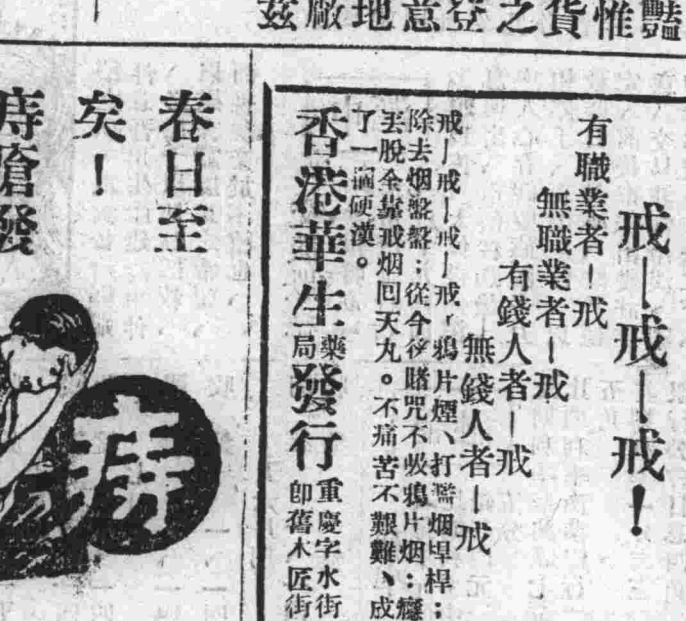 豔惟貨之登意地厰茲
戒—戒—戒！
有職業者！戒
無職業者—戒
有錢人者—戒
無錢人者—戒
戒—戒—戒—戒，鴉片煙、打濫烟旱桿；
除去烟盤盤；從今後賭咒不吸鴉片烟：癮
丟脫全靠戒烟囘天丸。不痛苦不艱難、成
了一個硬漢。
香港華生藥局發行
重慶字水街
卽舊木匠街
春日至
矣！
痔瘡發
痔